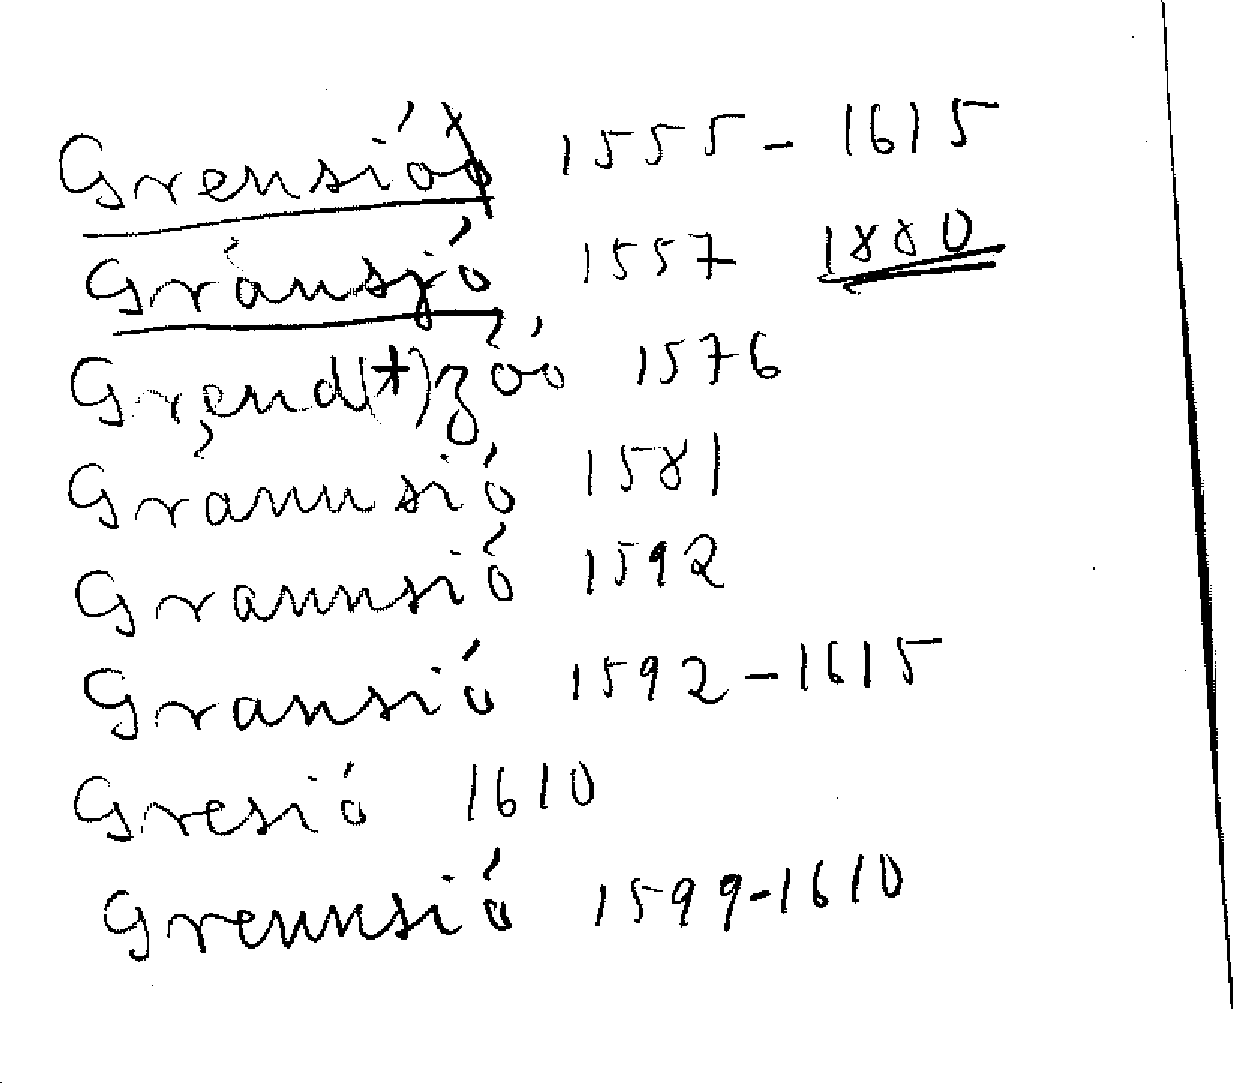 Grensió 1555-1615
Gränsjó 1557 1880
Grend(t)zóó 1576
Grànnsió 1581
Grannsió 1592
Gransió 1592-1615
Gresió 1610
Grennsió 1599-1610